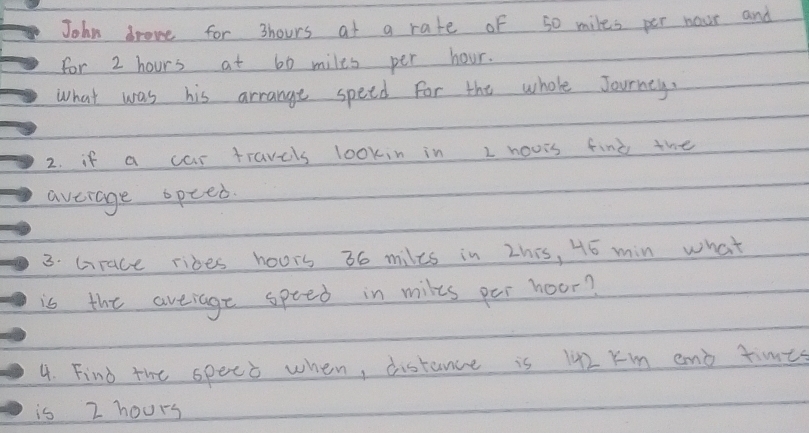 John drove for 3hours at a rate of 50 miles per hour and
for 2 hours at 60 miles per hour.
what was his arrange speed for the whole Journey.
2. if a car travels 100kin in 2 hours find the
average speed.
3. Grace rides hours 36 miles in 2hrs, 45 min what
is the average speed in miles per hour?
4. Find the speed when, distance is 142 km and times
is 2 hours